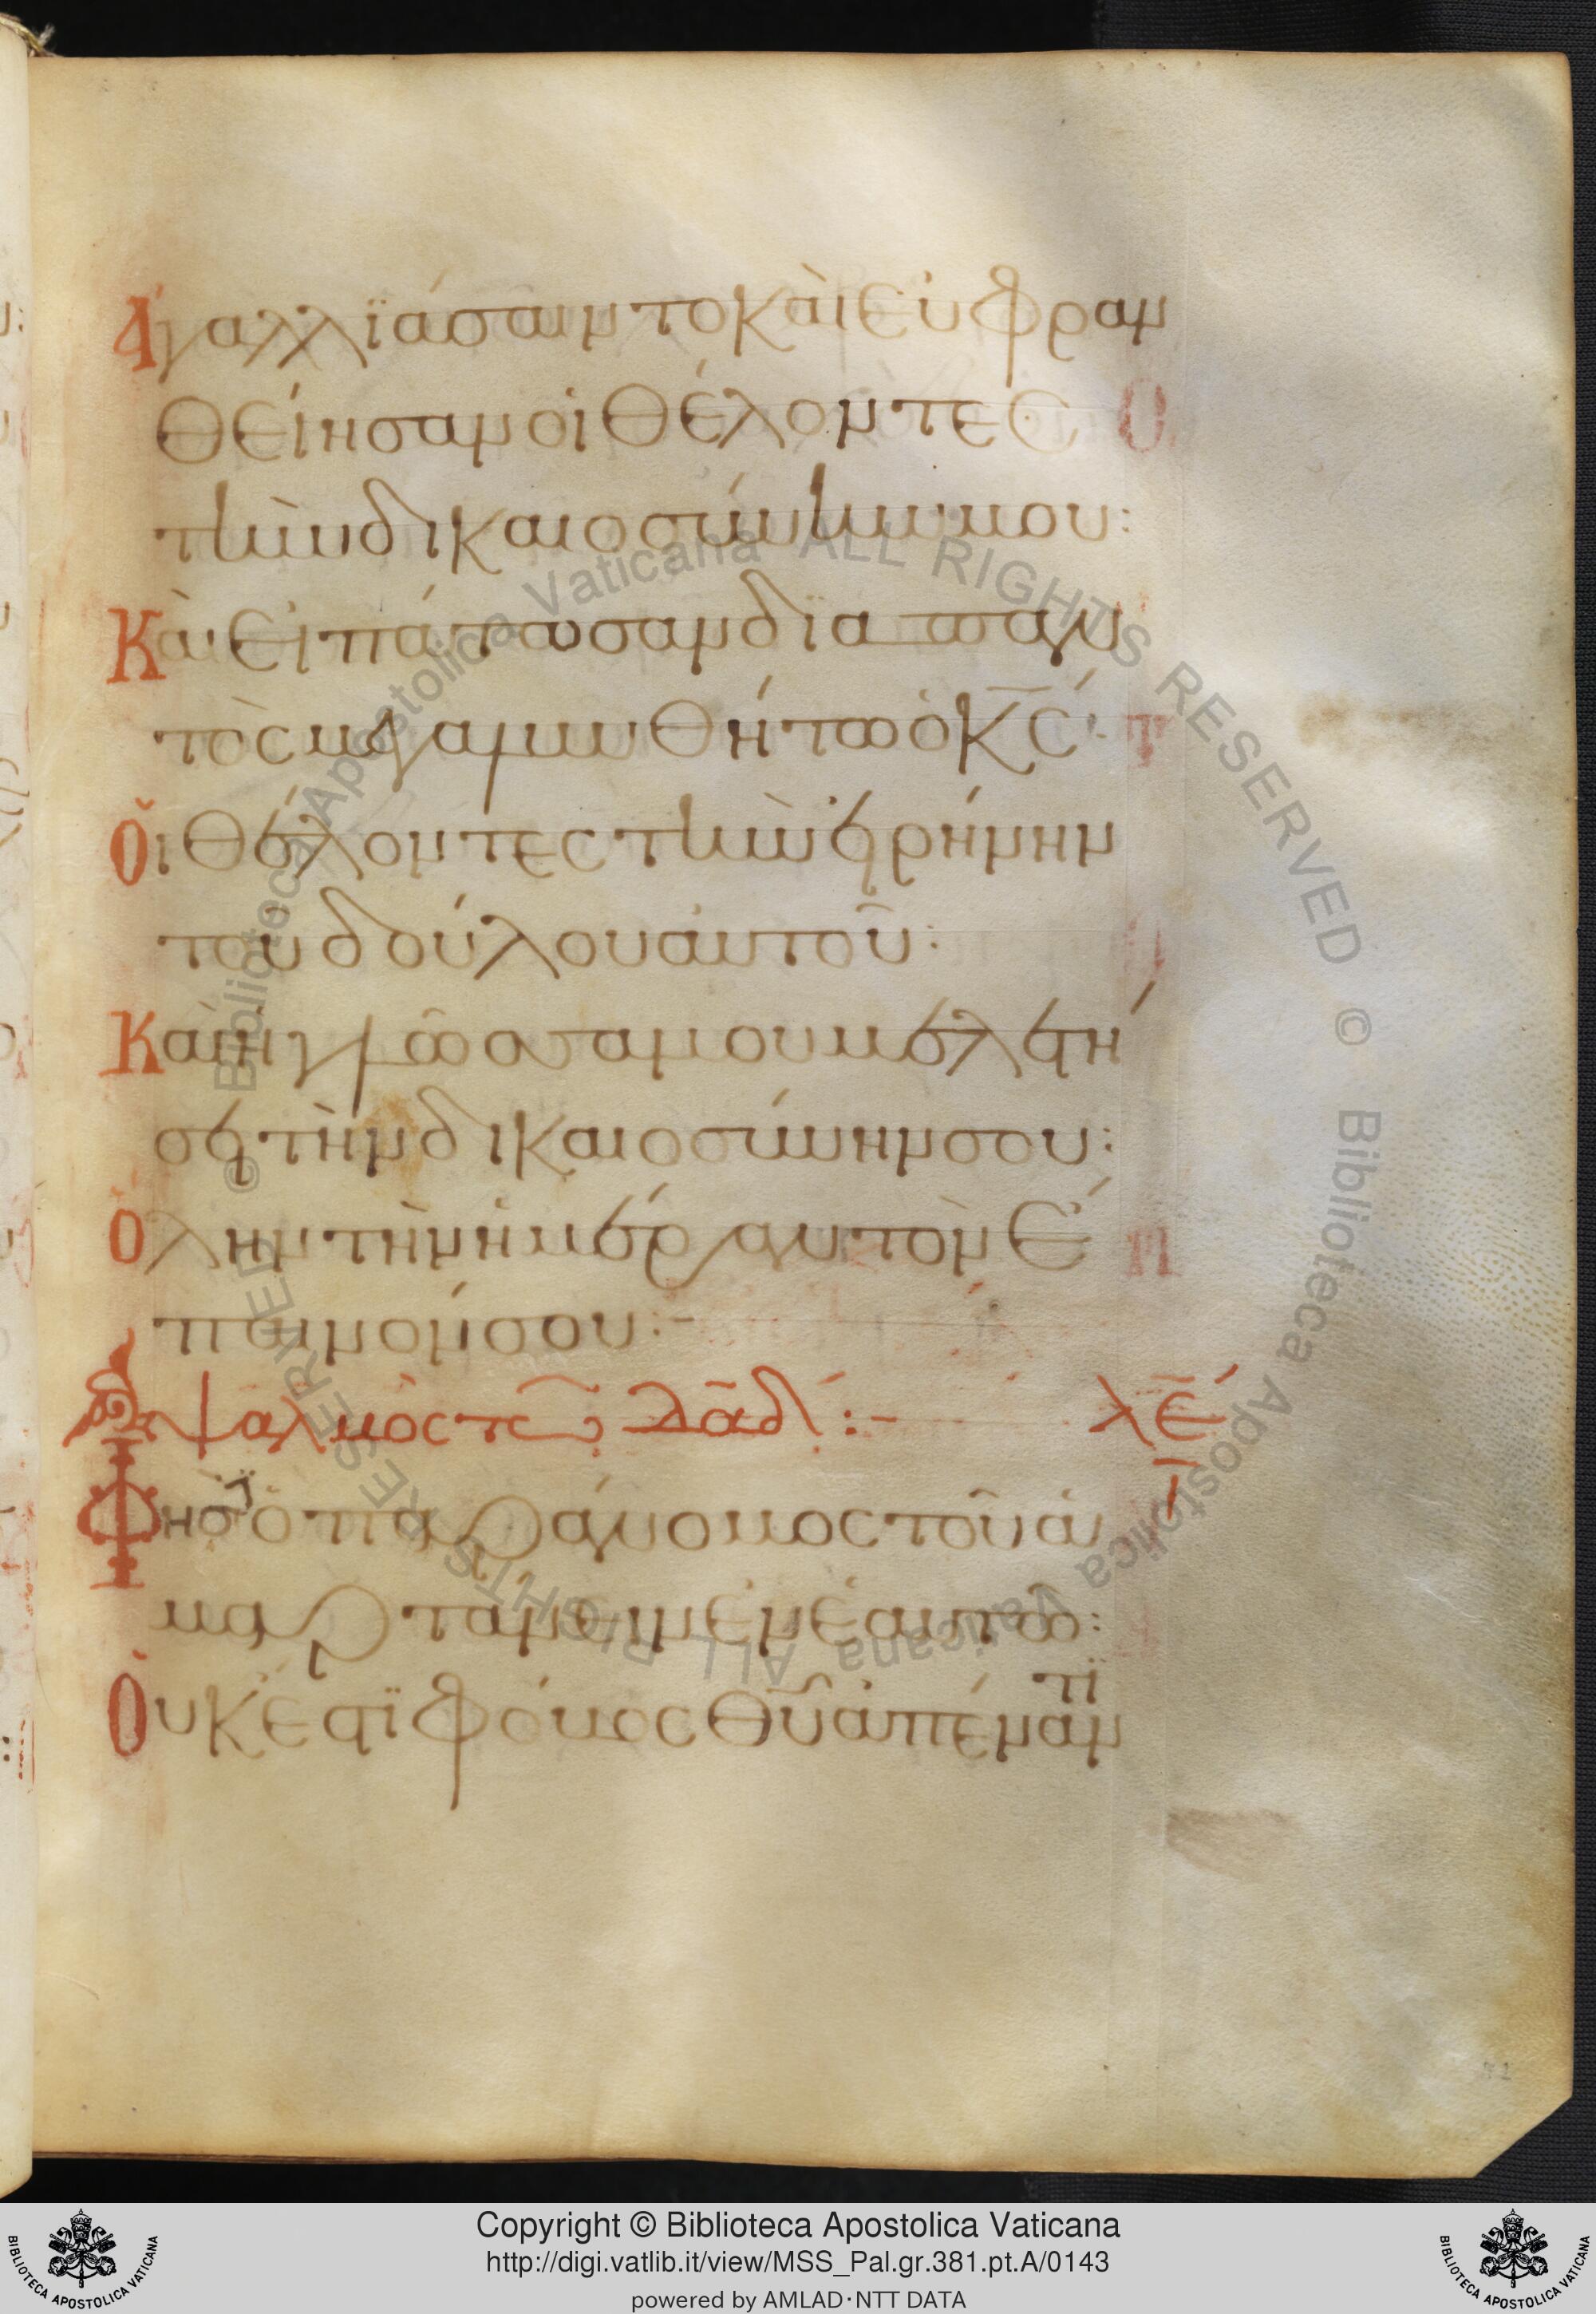 Ἀγαλλϊάσαιντο καὶ εὐφραν
θείησαν οἱ θέλοντες
τὴν δικαιοσύνην μου:
Καὶ εἰπάτωσαν δϊαπαν
τὸς μεγαλυνθήτω ὁ κ̅ς̅:
Οἱ θέλοντες τὴν εἰρήνην
τοῦ δούλου αὐτοῦ:
Καὶ ἡ γλῶσσα μου μελετή
σει τὴν δικαιοσύνην σου:
Ὅλην τὴν ἡμέραν τὸν ἔ
παινόν σου:-
Ψαλμὸς τῶ δα̅δ:- λ̅ε̅
Φησὶν ὁ παράνομος τοῦ ἁ
μαρτάνειν ἐν ἑαυτῶ: ι̅
Οὐκ ἔστϊ φόβος θ̅υ̅ ἀπέναν
τϊ
Copyright © Biblioteca Apostolica Vaticana
http://digi.vatlib.it/view/MSS_Pal.gr.381.pt.A/0143
powered by AMLAD·NTT DATA
BIBLIOTECA APOSTOLICA VATICANA
BIBLIOTECA APOSTOLICA VATICANA
© Biblioteca Apostolica Vaticana ALL RIGHTS RESERVED © Biblioteca Apostolica Vaticana ALL RIGHTS RESERVED